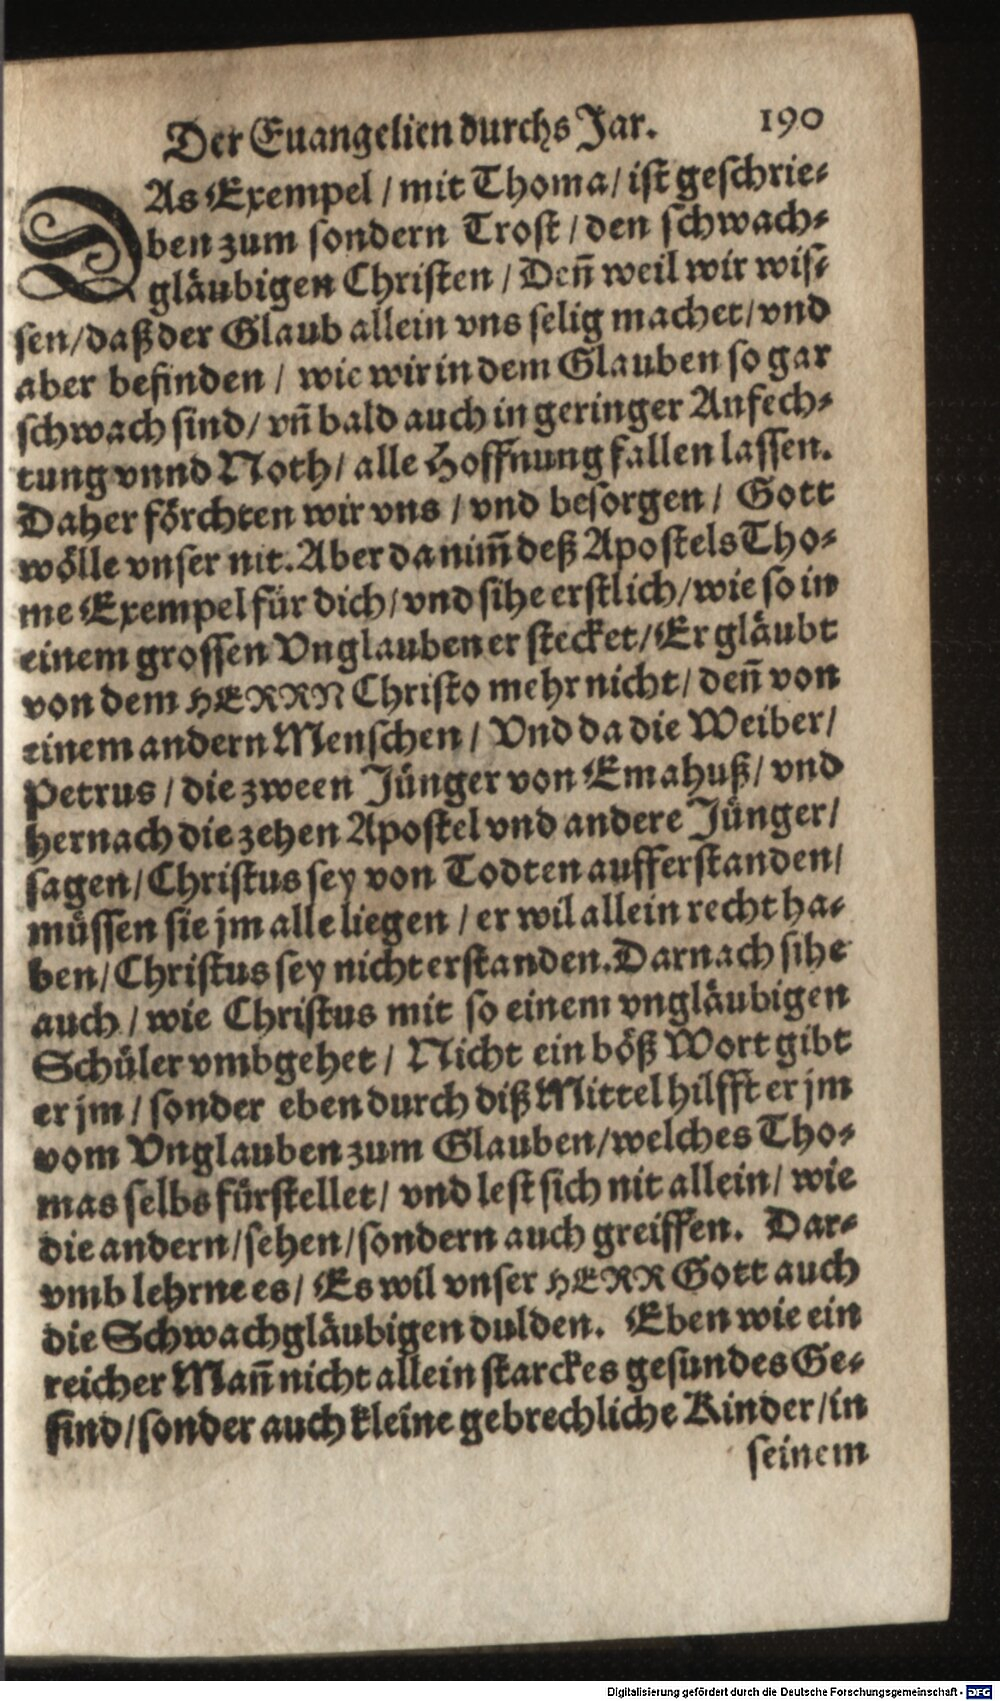 Der Euangelien durchs Jar. 190
DAs Exempel / mit Thoma / ist geschrie-
ben zum sondern Trost / den schwach-
gläubigen Christen / Deñ weil wir wis-
sen / daß der Glaub allein vns selig machet / vnd
aber befinden / wie wir in dem Glauben so gar
schwach sind / vñ bald auch in geringer Anfech-
tung vnnd Noth / alle Hoffnung fallen lassen.
Daher förchten wir vns / vnd besorgen / Gott
wölle vnser nit. Aber da nim̃ deß Apostels Tho-
me Exempel für dich / vnd sihe erstlich / wie so in
einem grossen Vnglauben er stecket / Er gläubt
von dem HERRN Christo mehr nicht / deñ von
einem andern Menschen / Vnd da die Weiber /
Petrus / die zween Jünger von Emahuß / vnd
hernach die zehen Apostel vnd andere Jünger /
sagen / Christus sey von Todten aufferstanden /
müssen sie jm alle liegen / er wil allein recht ha-
ben / Christus sey nicht erstanden. Darnach sihe
auch / wie Christus mit so einem vngläubigen
Schüler vmbgehet / Nicht ein böß Wort gibt
er jm / sonder eben durch diß Mittel hilfft er jm
vom Vnglauben zum Glauben / welches Tho-
mas selbs fürstellet / vnd lest sich nit allein / wie
die andern / sehen / sondern auch greiffen. Dar-
vmb lehrne es / Es wil vnser HERR Gott auch
die Schwachgläubigen dulden. Eben wie ein
reicher Mañ nicht allein starckes gesundes Ge-
sind / sonder auch kleine gebrechliche Kinder / in
seinem
Digitalisierung gefördert durch die Deutsche Forschungsgemeinschaft - DFG